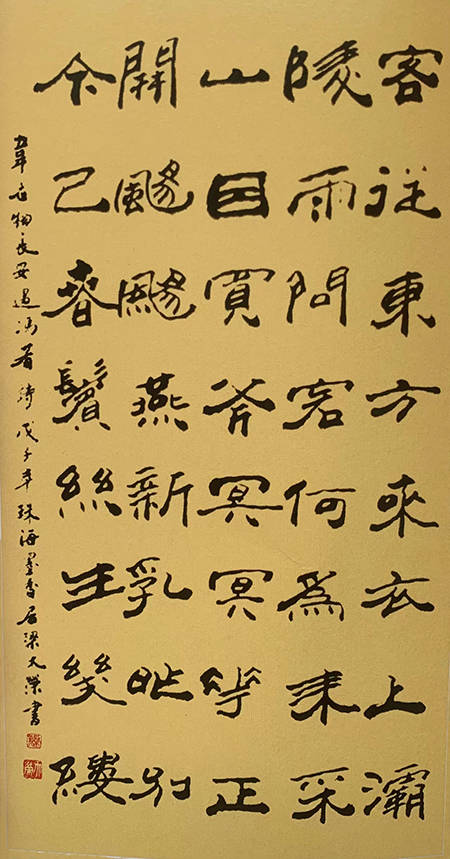 客從東方來衣上灞
陵雨問客何為来采
山因買斧冥冥花正
開颺颺燕新乳昨别
今已春鬢絲生幾縷
韋应物長安遇冯着詩戊子年珠海墨香居梁榮書